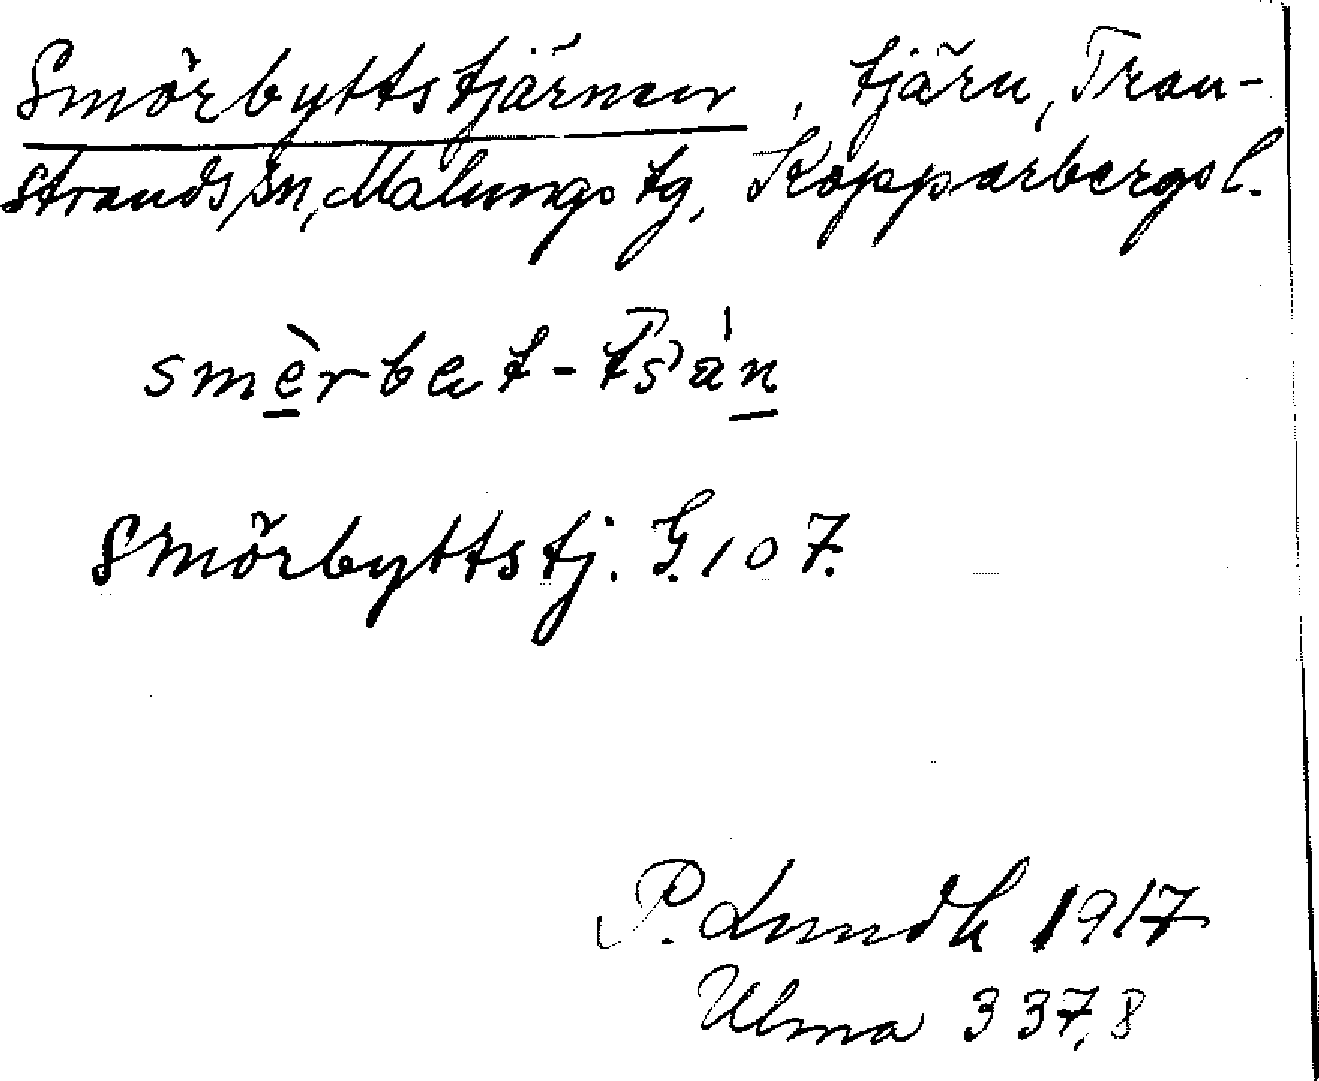 Smörbyttstjärnen, tjärn, Tran-
strands sn, Malungs tg, Kopparbergs l.
Smörbyttstj. G. 107.
P. Lundh 1917
Ulma 337,8